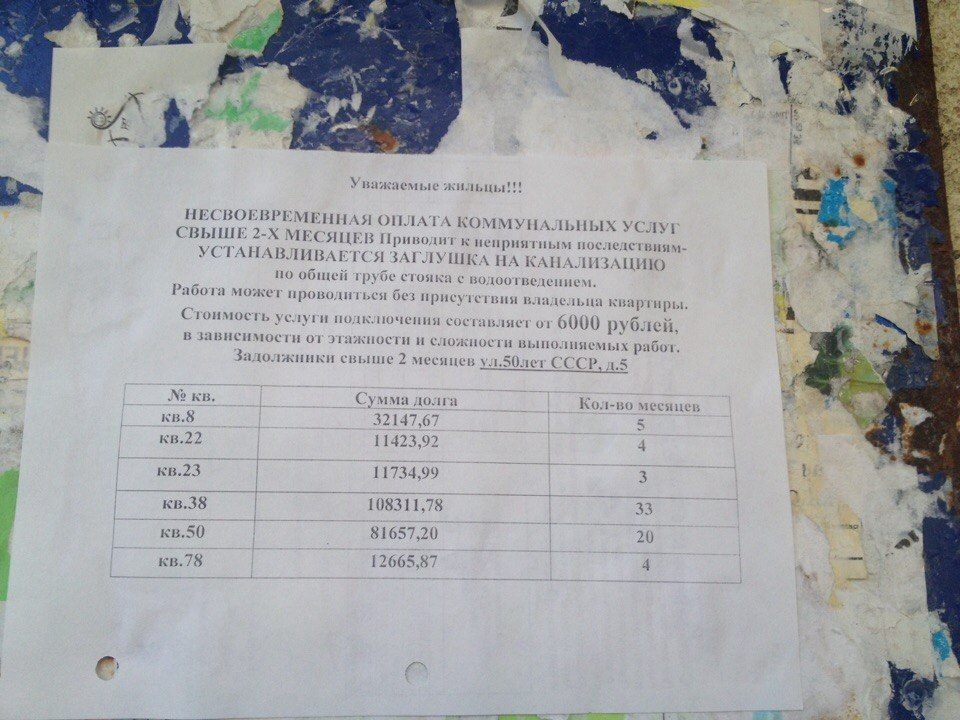 Уважаемые жильцы!!!
НЕСВОЕВРЕМЕННАЯ ОПЛАТА КОММУНАЛЬНЫХ УСЛУГ
СВЫШЕ 2-Х МЕСЯЦЕВ Приводит к неприятным последствиям-
УСТАНАВЛИВАЕТСЯ ЗАГЛУШКА НА КАНАЛИЗАЦИЮ
по общей трубе стояка с водоотведением.
Работа может проводиться без присутствия владельца квартиры.
Стоимость услуги подключения составляет от 6000 рублей,
в зависимости от этажности и сложности выполняемых работ.
Задолжники свыше 2 месяцев ул.50лет СССР, д.5
№ кв. Сумма долга Кол-во месяцев
кв.8 32147,67 5
кв.22 11423,92 4
кв.23 11734,99 3
кв.38 108311,78 33
кв.50 81657,20 20
кв.78 12665,87 4